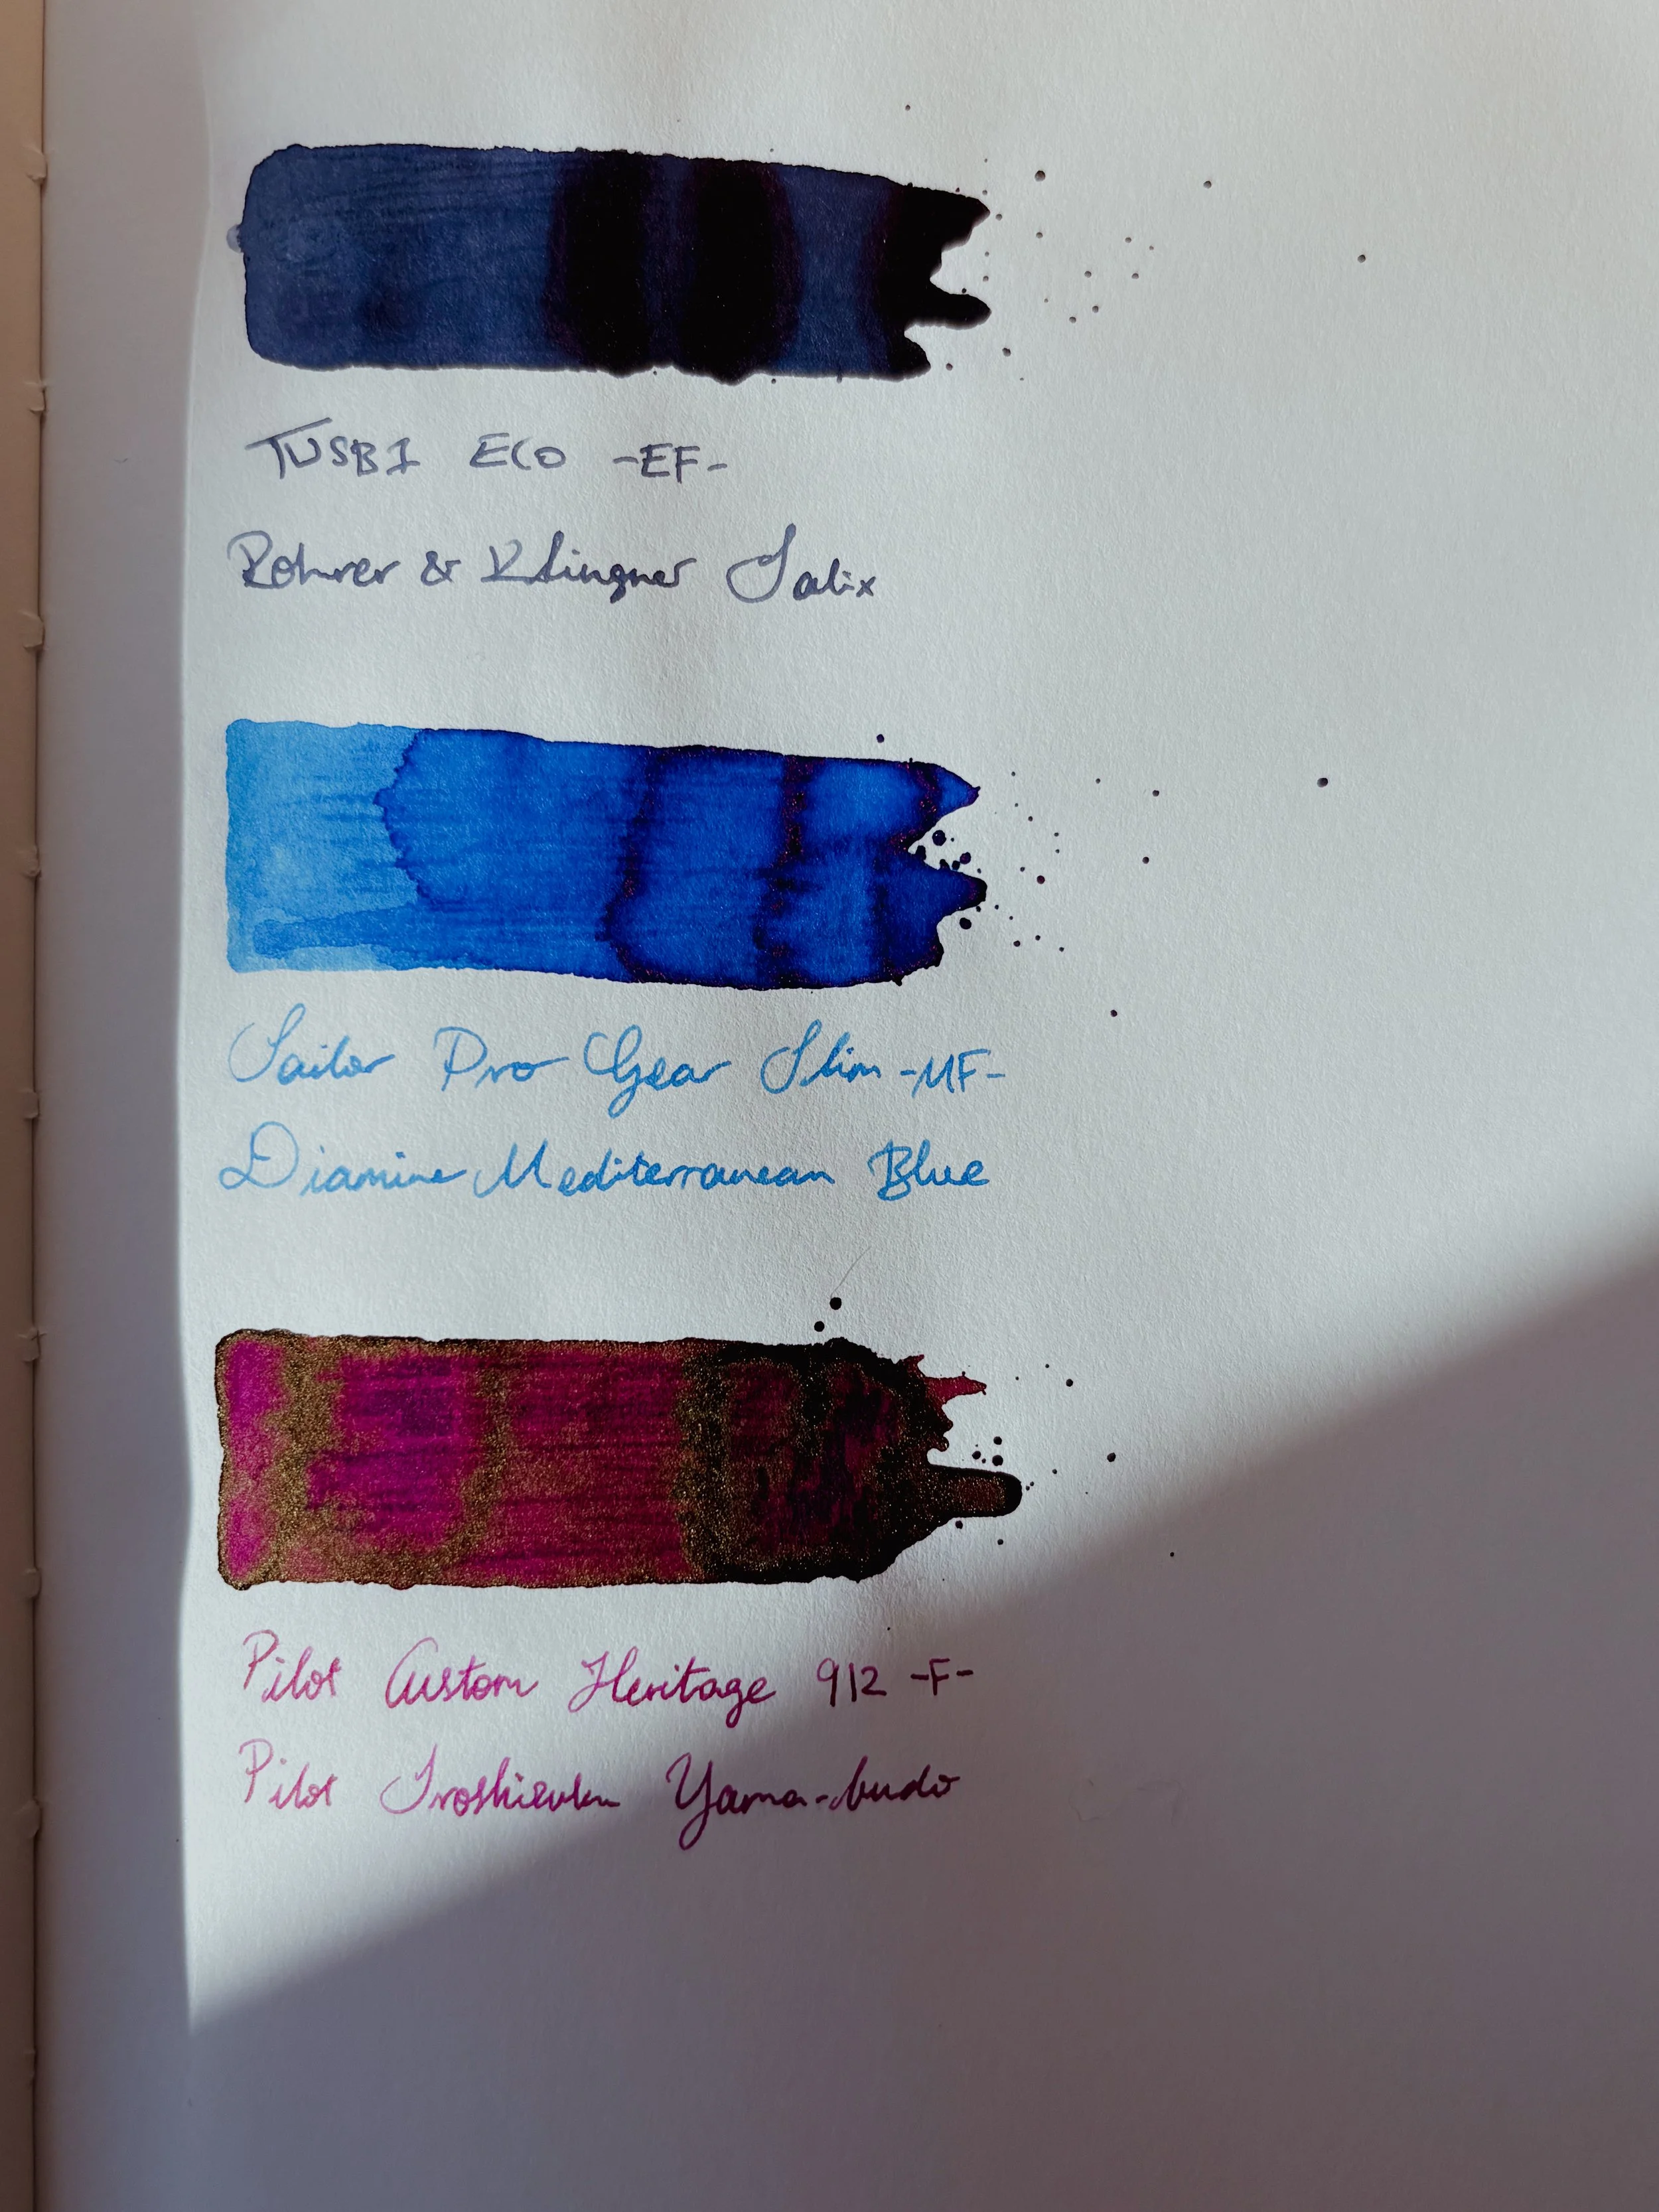 TWSBI ECO -EF-
Rohrer & Klingner Salix
Sailor Pro Gear Slim -MF-
Diamine Mediterranean Blue
Pilot Custom Heritage 912 -F-
Pilot Iroshizuku Yama-budo